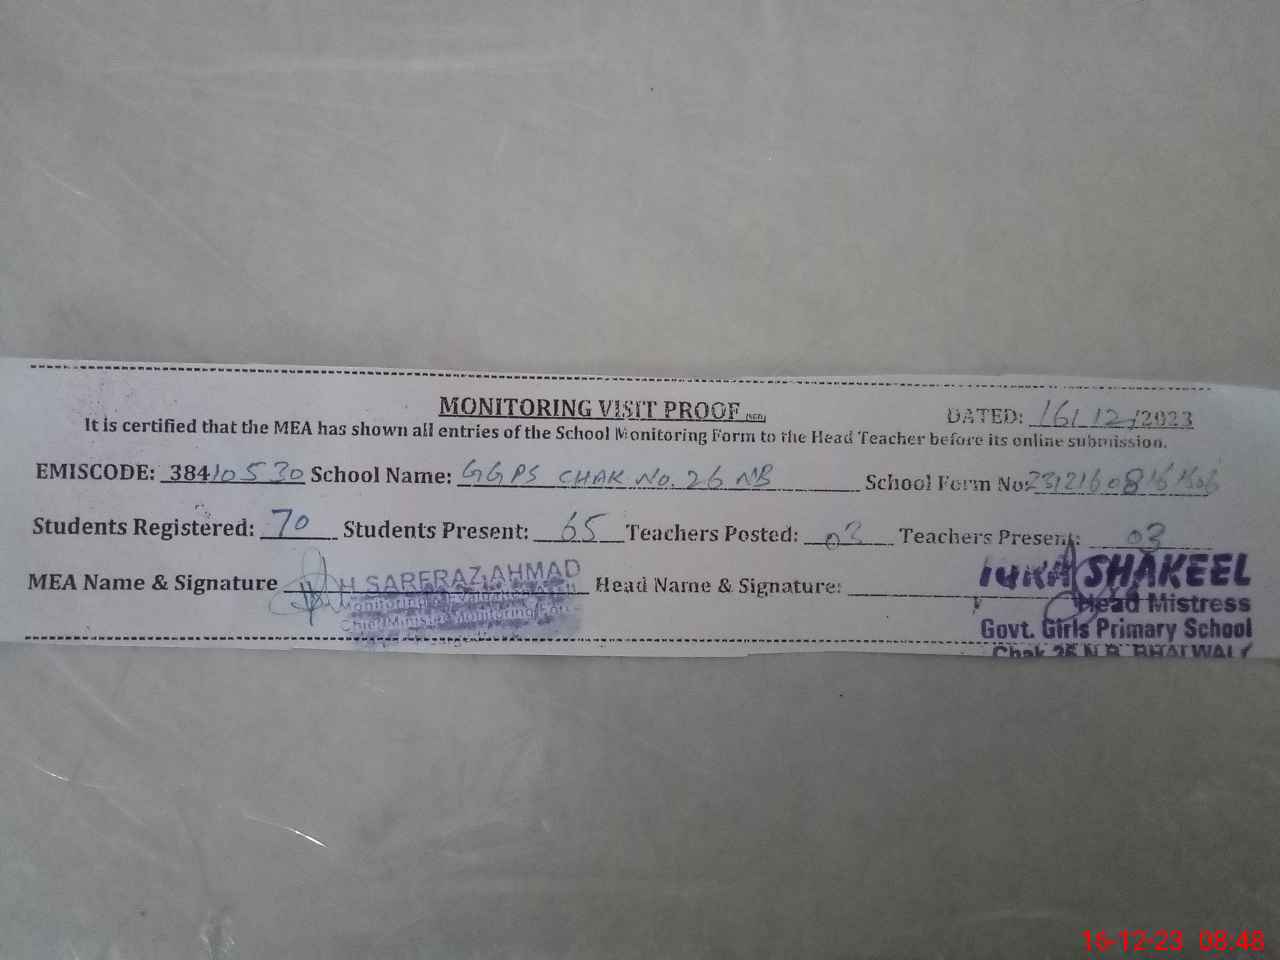 MONITORING VISIT PROOF
DATED: 16/12/2023
It is certified that the MEA has shown all entries of the School Monitoring Form to the Head Teacher before its online submission.
EMISCODE: 38410530 School Name: GGPS CHAK No. 26 NB School Form No:
Students Registered: 70 Students Present: 65 Teachers Posted: 03 Teachers Present: 03
MEA Name & Signature SARFRAZ AHMAD Head Name & Signature: SHAKEEL
Monitoring
Chief Minister Monitoring
Head Mistress
Govt. Girls Primary School
Chak N.B. BHALWAL
16-12-23 08:48